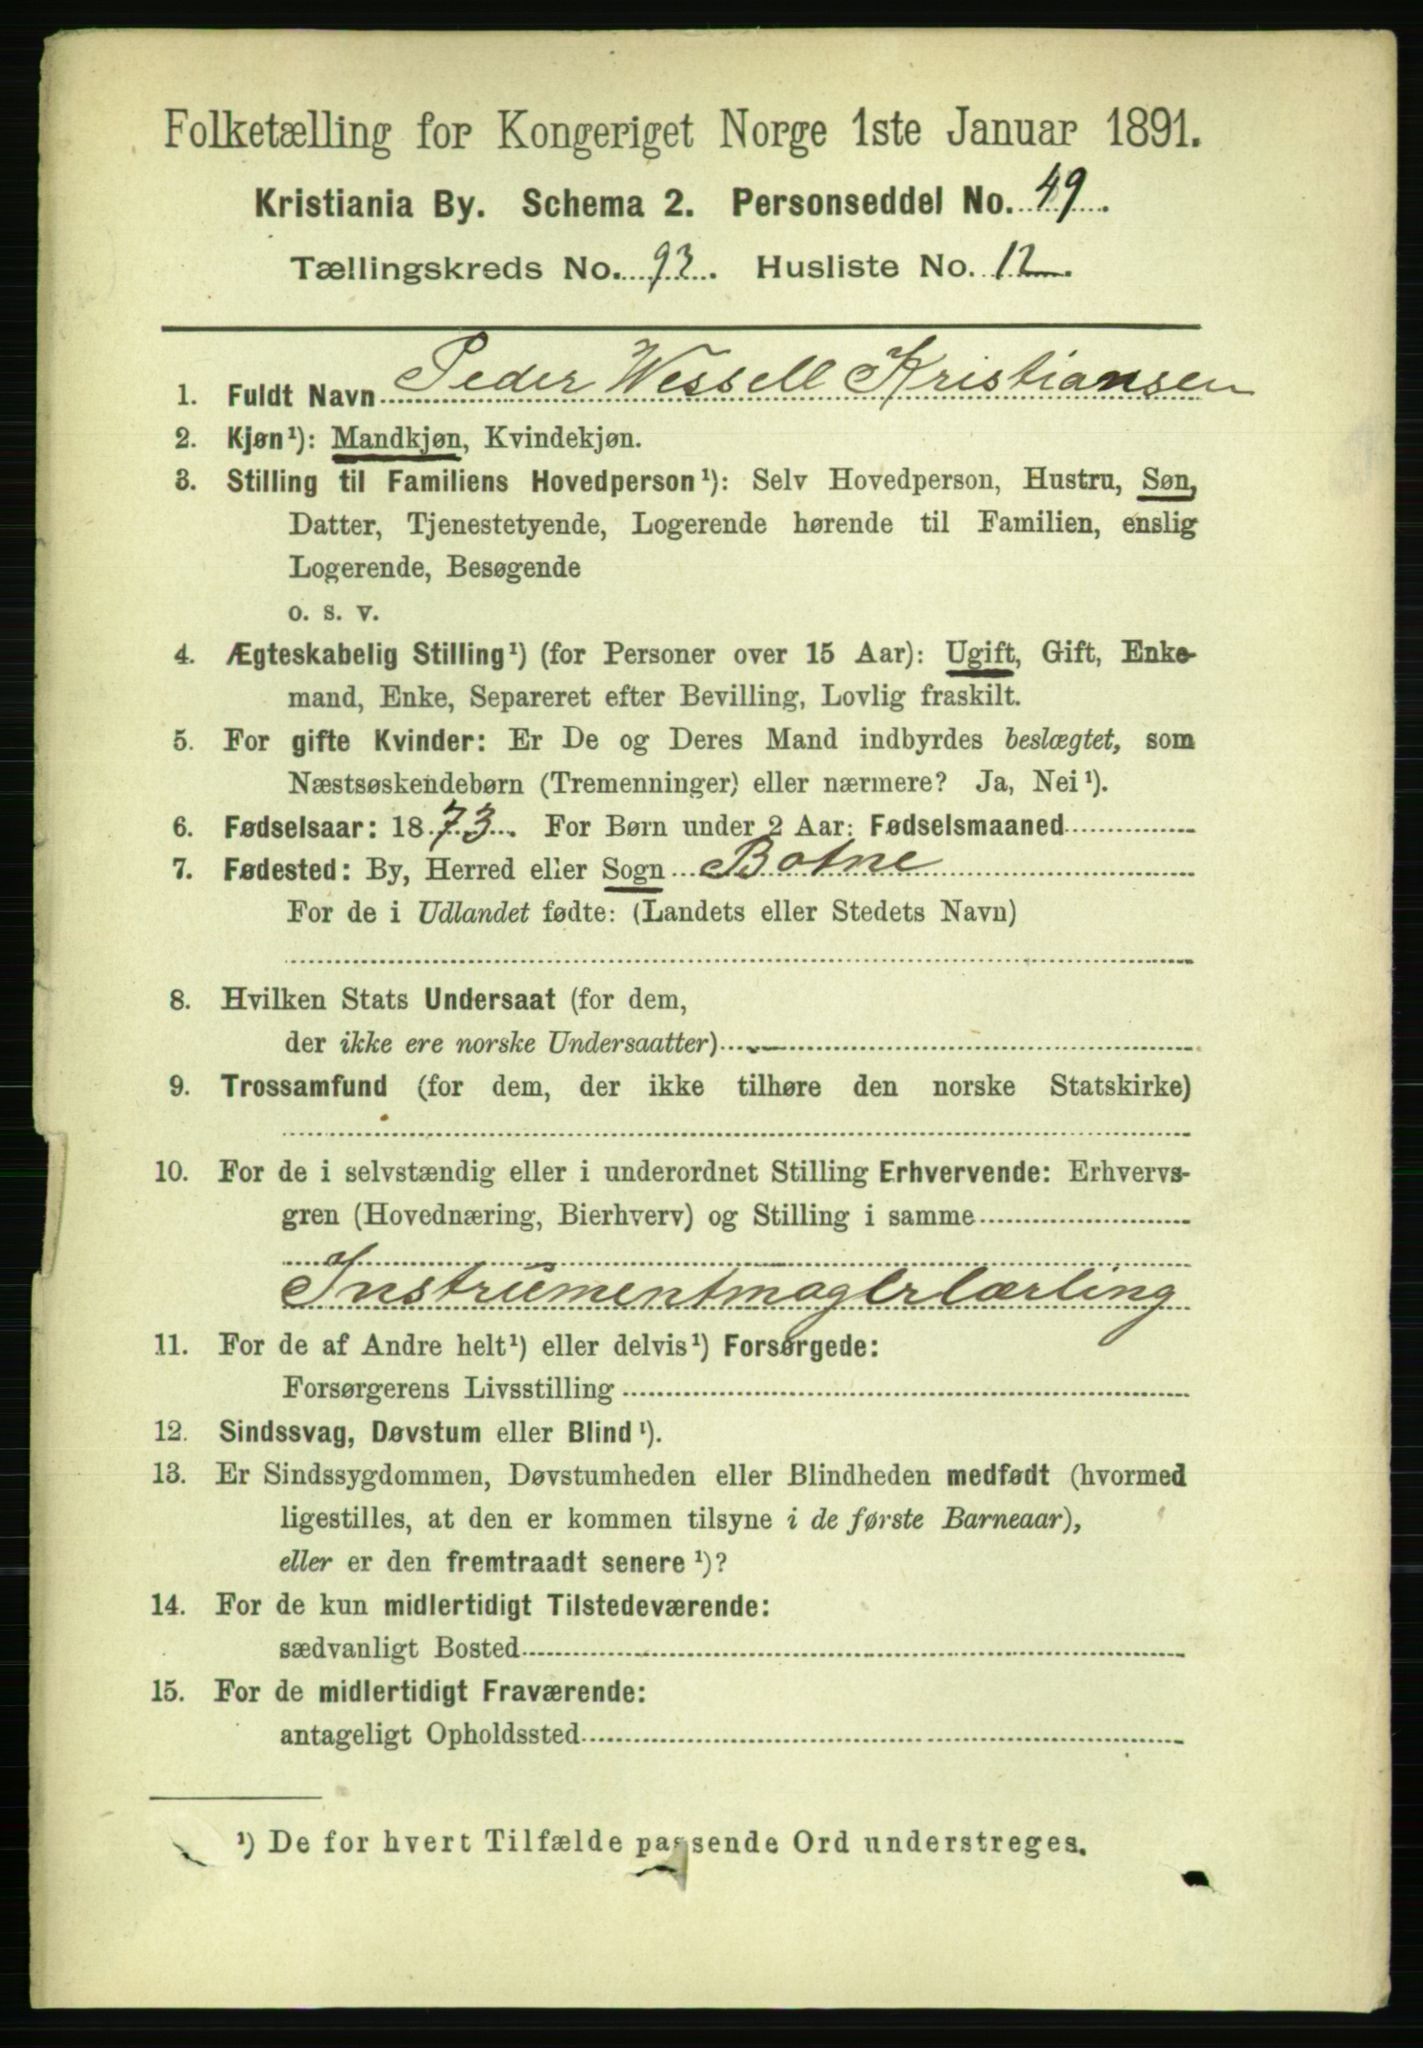 Folketælling for Kongeriget Norge 1ste Januar 1891.
Kristiania By. Schema 2. Personseddel No. 49.
Tællingskreds No. 93. Husliste No. 12.
1. Fuldt Navn Peder Wessell Kristiansen
2. Kjøn¹): Mandkjøn, Kvindekjøn.
3. Stilling til Familiens Hovedperson¹): Selv Hovedperson, Hustru, Søn,
Datter, Tjenestetyende, Logerende hørende til Familien, enslig
Logerende, Besøgende
o. s. v.
4. Ægteskabelig Stilling¹) (for Personer over 15 Aar): Ugift, Gift, Enke-
mand, Enke, Separeret efter Bevilling, Lovlig fraskilt.
5. For gifte Kvinder: Er De og Deres Mand indbyrdes beslægtet, som
Næstsøskendebørn (Tremenninger) eller nærmere? Ja, Nei¹).
6. Fødselsaar: 1873. For Børn under 2 Aar: Fødselsmaaned
7. Fødested: By, Herred eller Sogn Botne
For de i Udlandet fødte: (Landets eller Stedets Navn)
8. Hvilken Stats Undersaat (for dem,
der ikke ere norske Undersaatter)
9. Trossamfund (for dem, der ikke tilhøre den norske Statskirke)
10. For de i selvstændig eller i underordnet Stilling Erhvervende: Erhvervs-
gren (Hovednæring, Bierhverv) og Stilling i samme
Instrumentmagerlærling
11. For de af Andre helt¹) eller delvis¹) Forsørgede:
Forsørgerens Livsstilling
12. Sindssvag, Døvstum eller Blind¹).
13. Er Sindssygdommen, Døvstumheden eller Blindheden medfødt (hvormed
ligestilles, at den er kommen tilsyne i de første Barneaar),
eller er den fremtraadt senere¹)?
14. For de kun midlertidigt Tilstedeværende:
sædvanligt Bosted
15. For de midlertidigt Fraværende:
antageligt Opholdssted
¹) De for hvert Tilfælde passende Ord understreges.